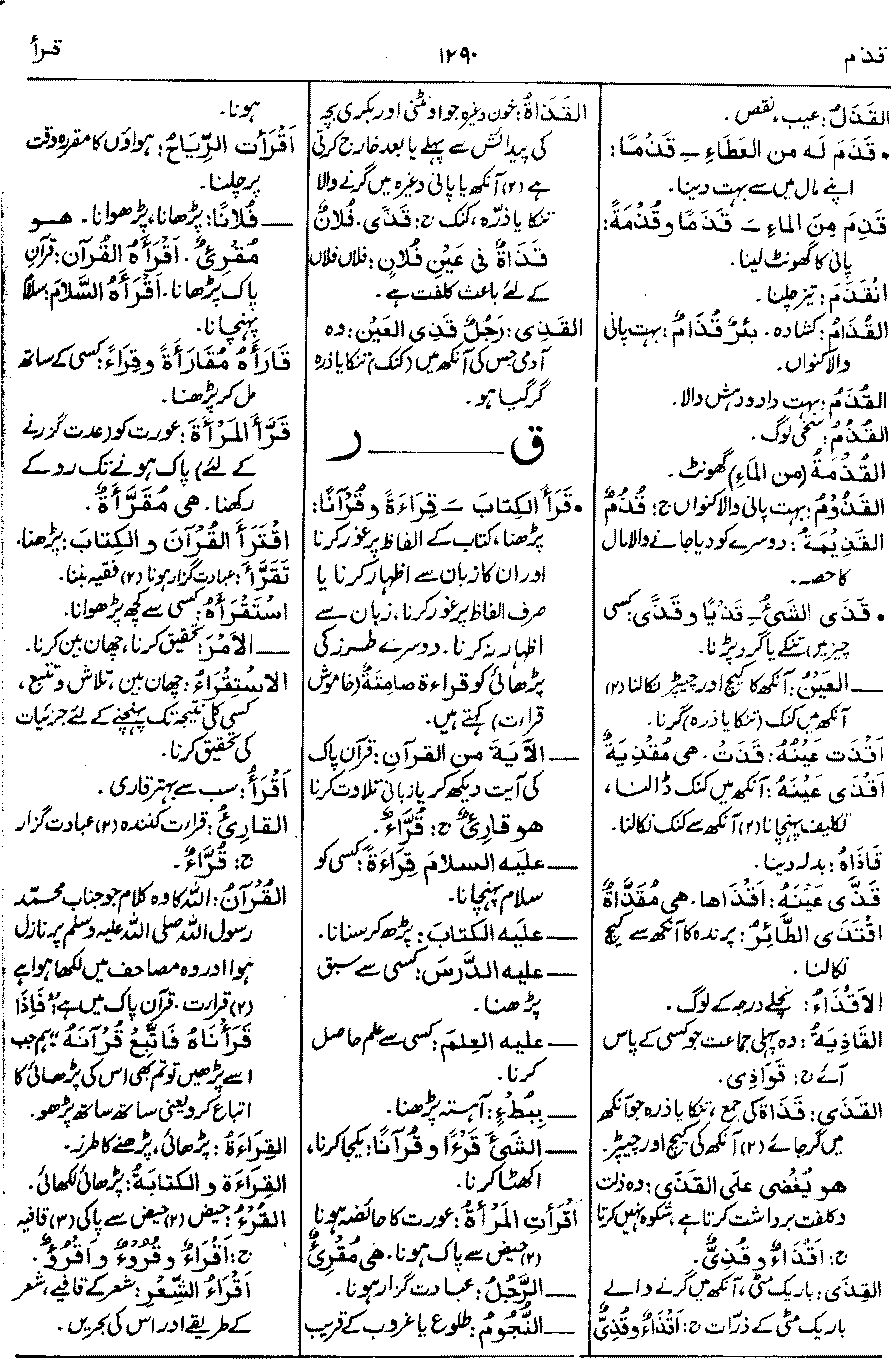 قذم
۱۲۹۰
قرأ
القَذَلُ: عیب، نقص.
• قَذَمَ لَه من العَطَاءِ ـَ قَذْمًا:
اپنے مال میں سے بہت دینا.
قَذِمَ مِنَ الماءِ ـَ قَذَمًا و قُذْمَةً:
پانی کا گھونٹ لینا.
انْقَذَمَ: تیز چلنا.
القُذَامُ: کشادہ. بئرٌ قُذَامٌ: بہت پانی
والا کنواں.
القُذَمُ: بہت داد و دہش والا.
القُذُمُ: سخی لوگ.
القُذْمَةُ (من الماءِ) گھونٹ.
القَذُوْمُ: بہت پانی والا کنواں ج: قُذُمٌ
القَذِيْمَةُ: دوسرے کو دیا جانے والا مال
کا حصہ.
• قَذَى الشَيْئُ ـِ قَذْيًا و قَذًى: کسی
چیز میں تنکے یا گرد پڑنا.
ـــ العَيْنُ: آنکھ کا کیچ اور چیپڑ نکالنا (۲)
آنکھ میں کنک (تنکا یا ذرہ) گرنا.
اَقْذَت عَيْنُهُ: قَذَتْ. هى مُقْذِيَةٌ
اَقْذَى عَيْنَهُ: آنکھ میں کنک ڈالنا،
تکلیف پہنچانا (۲) آنکھ سے کنک نکالنا.
قَاذَاهُ: بدلہ دینا.
قَذَّى عَيْنَهُ: اَقْذَاها. هى مُقَذَّاةٌ
اقْتَذَى الطَّائِرُ: پرندہ کا آنکھ سے کیچ
نکالنا.
الاَقْذَاءُ: نچلے درجہ کے لوگ.
القَاذِيَةُ: وہ پہلی جماعت جو کسی کے پاس
آئے ج: قَوَاذِى.
القَذَى: قَذَاة کی جمع، تنکا یا ذرہ جو آنکھ
میں گر جائے (۲) آنکھ کی کیچ اور چیپڑ.
هو يُغْضِى على القَذَى: وہ ذلت
و کلفت برداشت کرتا ہے شکوہ نہیں کرتا
ج: اَقْذَاءٌ و قُذِىٌّ.
القِذَى: باریک مٹی، آنکھ میں گرنے والے
باریک مٹی کے ذرات ج: اَقْذَاءٌ و قُذِىٌّ
القَذَاةُ: خون وغیرہ جو اونٹنی اور بکری بچہ
کی پیدائش سے پہلے یا بعد خارج کرتی
ہے (۲) آنکھ یا پانی وغیرہ میں گرنے والا
تنکا یا ذرہ، کنک ج: قَذًى. فُلانٌ
قَذَاةٌ فى عَيْنِ فُلانٍ: فلاں فلاں
کے لئے باعث کلفت ہے.
القَذِى: رَجُلٌ قَذِى العَيْنِ: وہ
آدمی جس کی آنکھ میں (کنک) تنکا یا ذرہ
گر گیا ہو.
ق ـــــــ ر
• قَرَأَ الكِتَابَ ـَ قِرَاءَةً و قُرْآنًا:
پڑھنا، کتاب کے الفاظ پر غور کرنا
اور ان کا زبان سے اظہار کرنا یا
صرف الفاظ پر غور کرنا، زبان سے
اظہار نہ کرنا. دوسرے طرز کی
پڑھائی کو قراءة صامتةٌ (خاموش
قراءت) کہتے ہیں.
ـــ الآيَةَ من القرآنِ: قرآن پاک
کی آیت دیکھ کر یا زبانی تلاوت کرنا
هو قارِئٌ ج: قُرَّاءٌ.
ـــ عليه السلامَ قِرَاءَةً: کسی کو
سلام پہنچانا.
ـــ عليه الكتابَ: پڑھ کر سنانا.
ـــ عليه الدَّرسَ: کسی سے سبق
پڑھنا.
ـــ عليه العِلمَ: کسی سے علم حاصل
کرنا.
ـــ بِبُطْءٍ: آہستہ پڑھنا.
ـــ الشَّيْئَ قَرْءًا و قُرآنًا: یکجا کرنا،
اکھٹا کرنا.
اَقْرَأَتِ المَرْأةُ: عورت کا حائضہ ہونا
(۲) حیض سے پاک ہونا. هى مُقْرِئٌ
ـــ الرَّجُلُ: عبادت گزار ہونا.
ـــ النُّجُومُ: طلوع یا غروب کے قریب
ہونا.
اَقْرَأَت الرِّيَاحُ: ہواؤں کا مقررہ وقت
پر چلنا.
ـــ فُلانًا: پڑھانا، پڑھوانا. هو
مُقْرِئٌ. اَقْرأهُ القُرآن: قرآن
پاک پڑھانا. اَقْرَأَهُ السَّلامَ: سلام
پہنچانا.
قَارَأَهُ مُقَارَأَةً و قِرَاءً: کسی کے ساتھ
مل کر پڑھنا.
قَرَّأَ المَرْأةَ: عورت کو (عدت گزرنے
کے لئے) پاک ہونے تک روکے
رکھنا. هى مُقَرَّأَةٌ.
اقْتَرَأَ القُرْآنَ و الكِتَابَ: پڑھنا.
تَقَرَّأَ: عبادت گزار ہونا (۲) فقیہ بننا.
اسْتَقْرَأَهُ: کسی سے کچھ پڑھوانا.
ـــ الاَمْرَ: تحقیق کرنا، چھان بین کرنا.
الاسْتِقْرَاءُ: چھان بین، تلاش و تتبع،
کسی کلی نتیجہ تک پہنچنے کے لئے جزئیات
کی تحقیق کرنا.
اَقْرَأُ: سب سے بہتر قاری.
القارِئُ: قراءت کنندہ (۲) عبادت گزار
ج: قُرَّاءٌ.
القُرْآنُ: اللہ کا وہ کلام جو جناب محمد
رسول اللہ صلی اللہ علیہ وسلم پر نازل
ہوا اور وہ مصاحف میں لکھا ہوا ہے
(۲) قراءت. قرآن پاک میں ہے: "فَإذَا
قَرَأْنَاهُ فَاتَّبِعْ قُرْآنَهُ" ہم جب
اسے پڑھیں تو تم بھی اس کی پڑھائی کا
اتباع کرو یعنی ساتھ ساتھ پڑھو.
القِرَاءَةُ: پڑھائی، پڑھنے کا طرز.
القِرَاءَة و الكتابَةُ: پڑھائی لکھائی.
القُرْءُ: حیض (۲) حیض سے پاکی (۳) قافیہ
ج: اَقْرَاءٌ و قُرُوْءٌ و اَقْرُؤٌ.
اَقْرَاءُ الشِّعْرِ: شعر کے قافیے، شعر
کے طریقے اور اس کی بحریں.